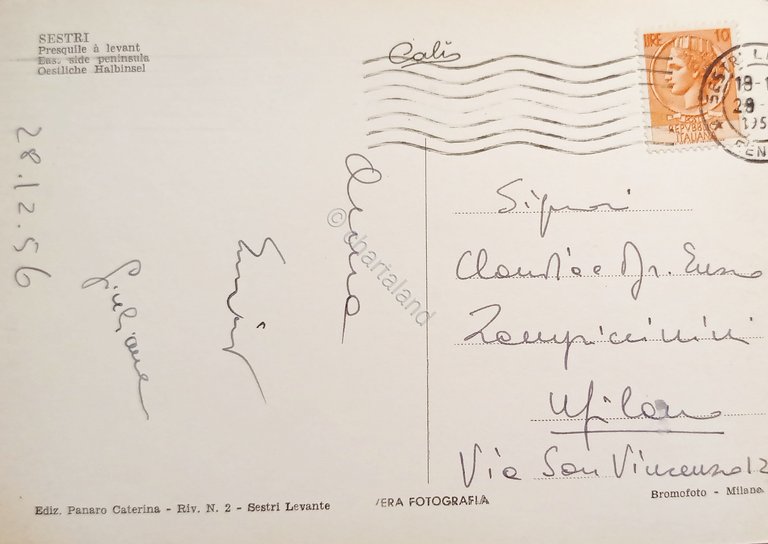 SESTRI
Presquile à levant
Eas. side peninsula
Oestliche Halbinsel
28.12.56
Giuliana
LIRE 10
REPUBBLICA
ITALIANA
SESTRI L
28
195
Signori
Claudia e Dr. Enzo
Zampiccinini
Milano
Via San Vincenzo 12
© chartaland
Ediz. Panaro Caterina - Riv. N. 2 - Sestri Levante
VERA FOTOGRAFIA
Bromofoto - Milano